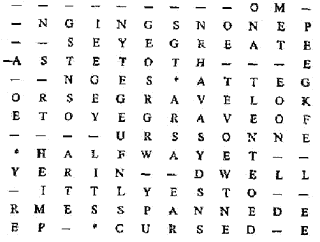 — — — — — — — — — O M —
— N G I N G S N O N E P
— — S E Y E G R E A T E
—A S T E T O T H — — E
— — N G E S * A T T E G
O R S E G R A V E L O K
E T O Y E G R A V E O F
— — — — U R S S O N N E
* H A L F W A Y E T — —
Y E R I N — — D W E L L
— I T T L Y E S T O — —
R M E S S P A N N E D E
E P — * C U R S E D — E